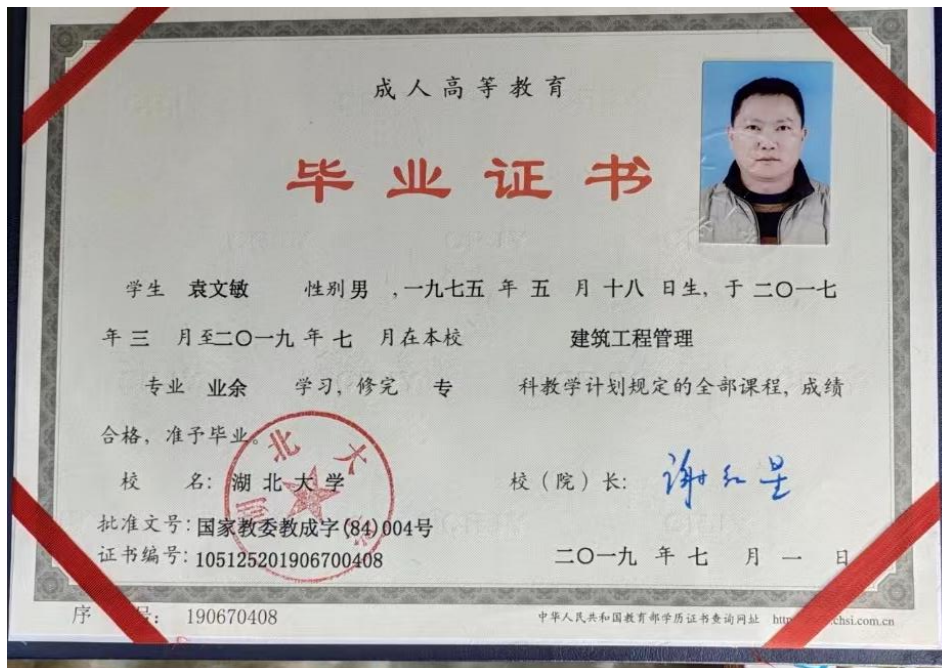 成人高等教育
毕业证书
学生 袁文敏 性别 男 ,一九七五 年 五 月 十八 日生, 于 二〇一七
年 三 月至二〇一九 年 七 月在本校 建筑工程管理
专业 业余 学习, 修完 专 科教学计划规定的全部课程, 成绩
合格, 准予毕业。
校 名: 湖北大学 校(院)长: 谢红星
湖北大学
批准文号: 国家教委教成字(84)004号
证书编号: 105125201906700408 二〇一九 年 七 月 一 日
序 号: 190670408 中华人民共和国教育部学历证书查询网址 http chsi.com.cn